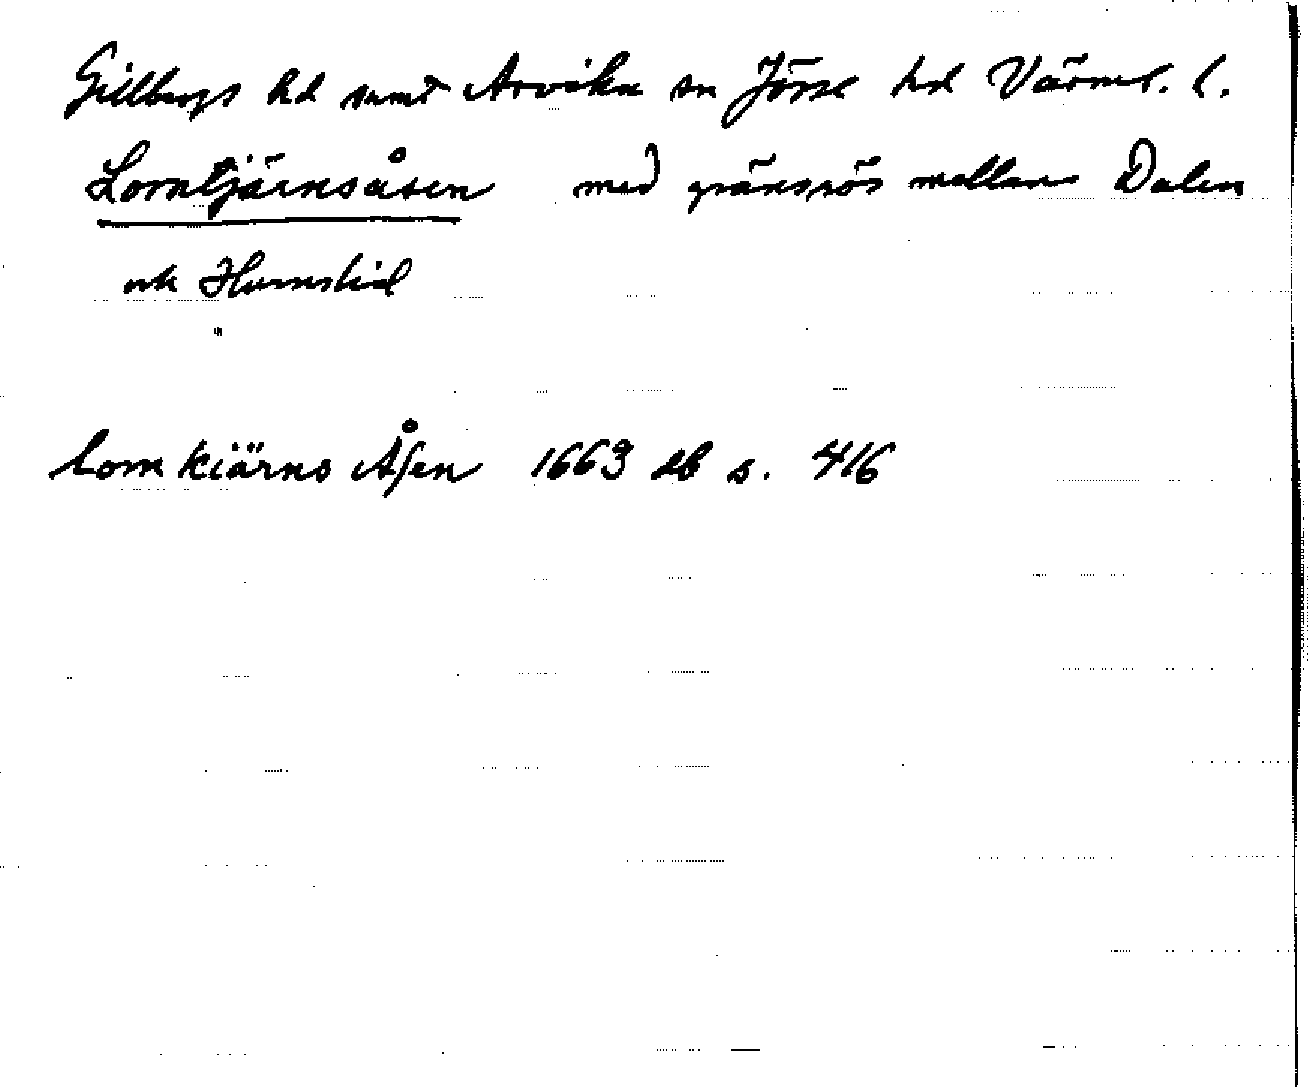 Gillbergs hd samt Arvika sn Jösse hd Värml. l.
Lomtjärnsåsen med gränsrös mellan Dalen
och Humslid
Lom kiärns Åsen 1663 db s. 416